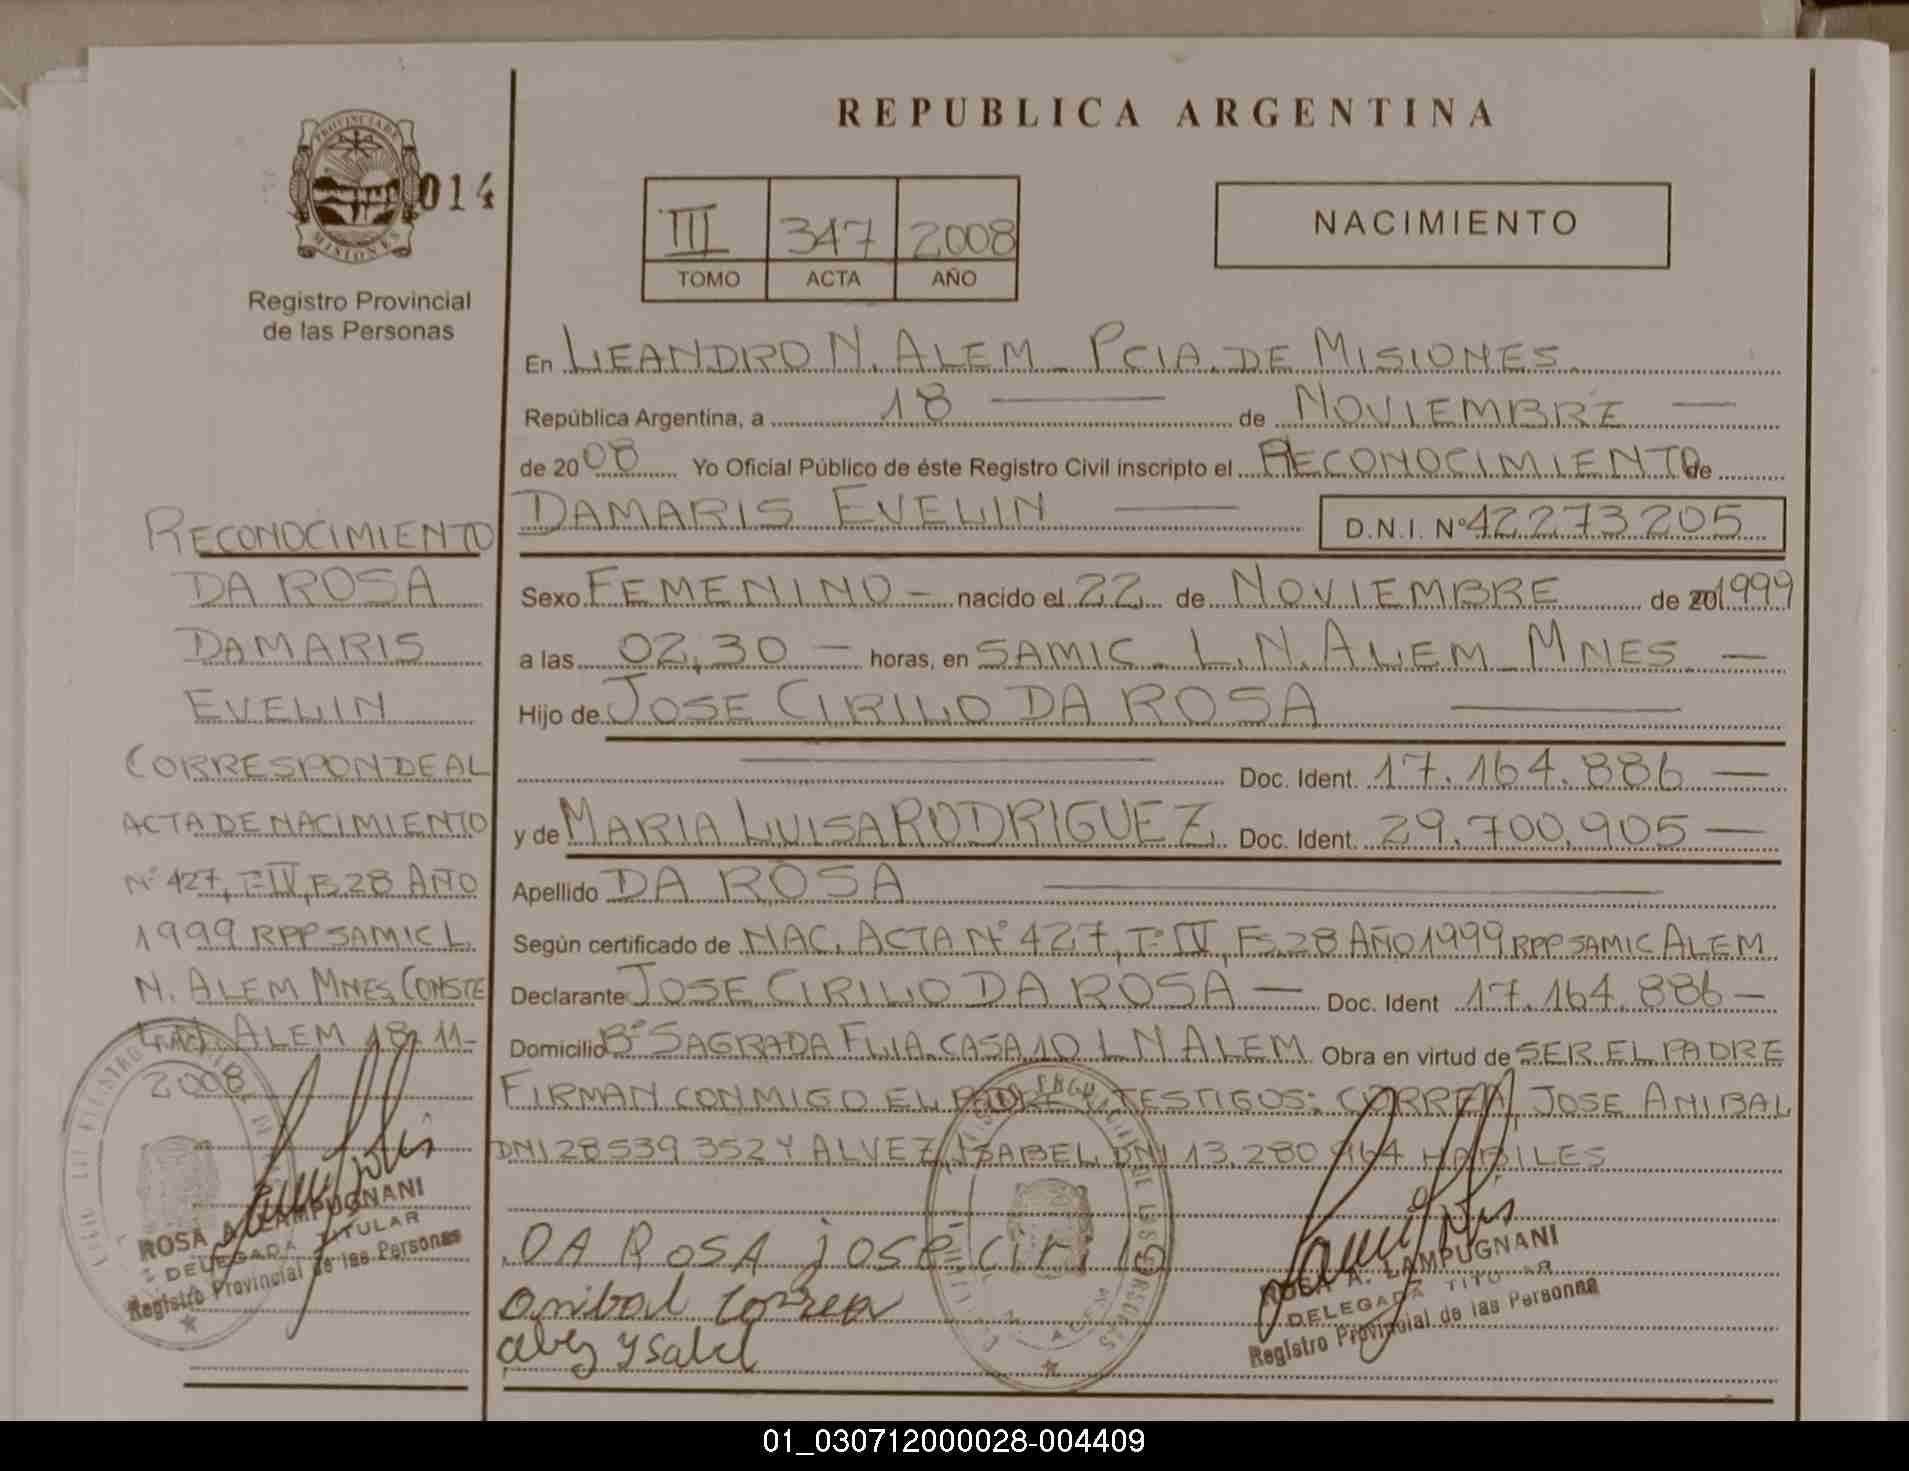 REPUBLICA ARGENTINA
PROVINCIA DE
MISIONES
014
Registro Provincial
de las Personas
III 347 2008
TOMO ACTA AÑO
NACIMIENTO
En LEANDRO N. ALEM - PCIA. DE MISIONES
República Argentina, a 18 de NOVIEMBRE
de 2008 Yo Oficial Público de éste Registro Civil inscripto el RECONOCIMIENTO de
DAMARIS EVELIN D.N.I. Nº 42273205
Sexo FEMENINO - nacido el 22 de NOVIEMBRE de 20 1999
a las 02,30 - horas, en SAMIC - L.N. ALEM - MNES -
Hijo de JOSE CIRILO DA ROSA
Doc. Ident. 17.164.886 -
y de MARIA LUISA RODRIGUEZ Doc. Ident. 29.700.905 -
Apellido DA ROSA
Según certificado de NAC. ACTA Nº 427, Tº IV, Fs. 28 AÑO 1999 RPP SAMIC ALEM
Declarante JOSE CIRILO DA ROSA - Doc. Ident 17.164.886 -
Domicilio Bº SAGRADA FLIA. CASA 10 L N ALEM Obra en virtud de SER EL PADRE
FIRMAN CONMIGO EL PADRE Y TESTIGOS: CORREA, JOSE ANIBAL
DNI 28539352 Y ALVEZ, ISABEL DNI 13.280 964 HABILES
DA ROSA jose cirilo
Anibal Correa
alvez Ysabel
ROSA A. LAMPUGNANI
DELEGADA TITULAR
Registro Provincial de las Personas
RECONOCIMIENTO
DA ROSA
DAMARIS
EVELIN
CORRESPONDE AL
ACTA DE NACIMIENTO
Nº 427, Tº IV, Fs. 28 AÑO
1999 RPP SAMIC L.
N. ALEM MNES. CONSTE
L.N. ALEM 18-11-
2008
ROSA A. LAMPUGNANI
DELEGADA TITULAR
Registro Provincial de las Personas
01_030712000028-004409